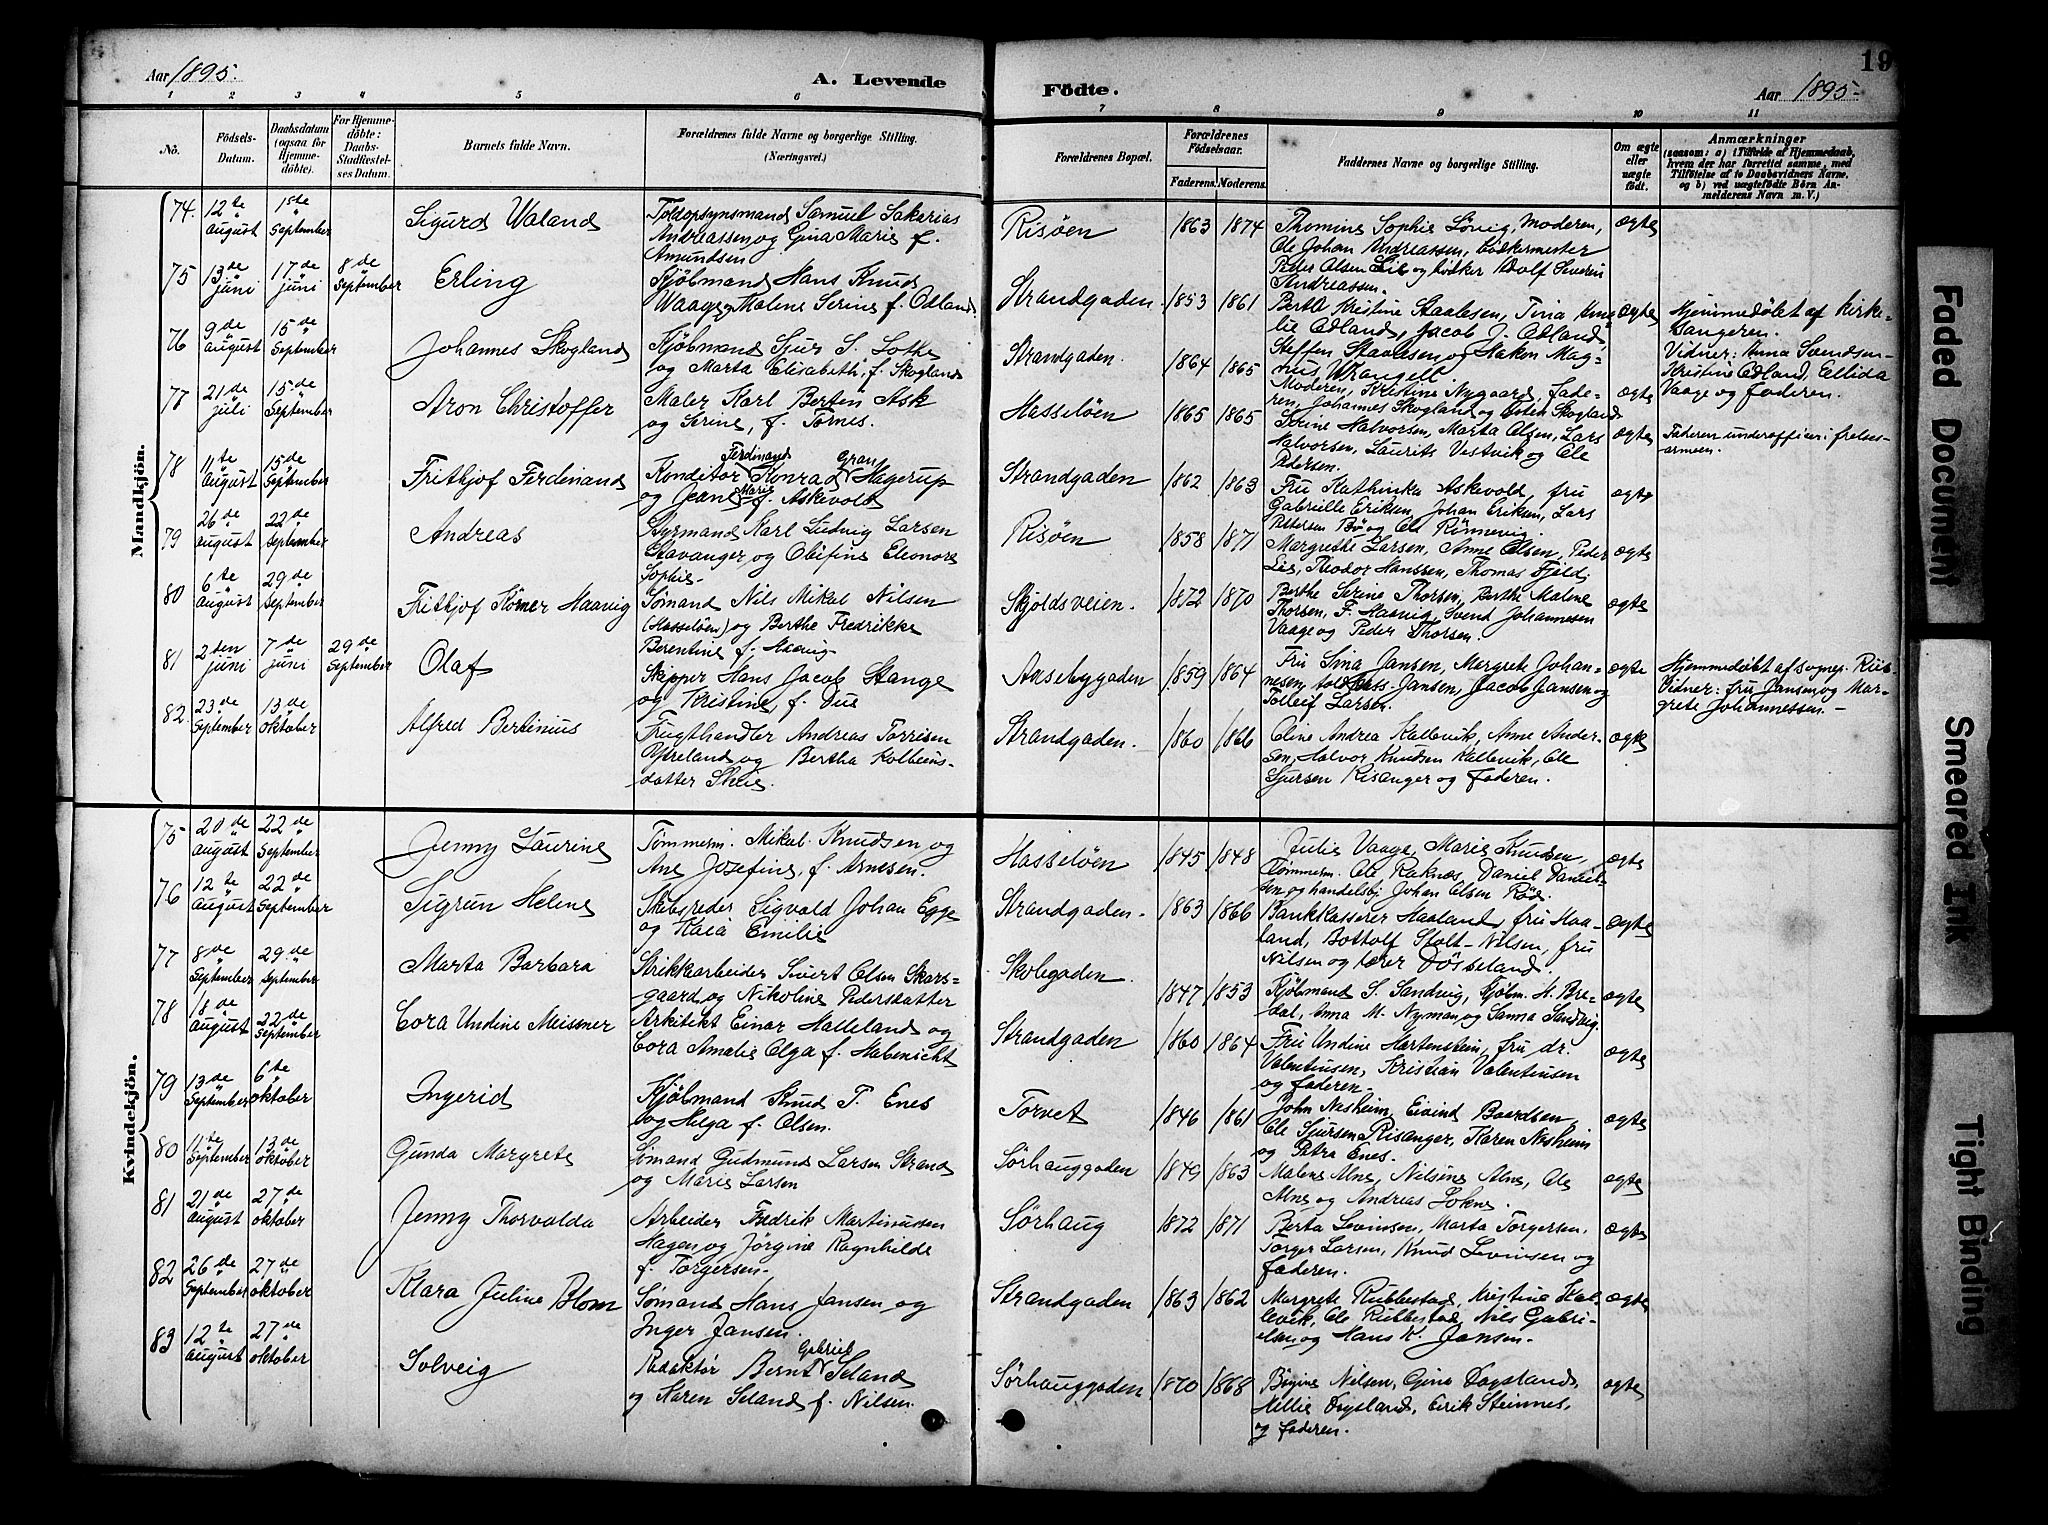 Aar 1895.
A. Levende
Födte.
Aar 1895.
19
1 2 3 4 5 6 7 8 9 10 11
No.
Födsels-
Datum.
Daabsdatum
(ogsaa for
Hjemme-
døbte).
For Hjemme-
døbte:
Daabs-
Stadfæstel-
ses Datum.
Barnets fulde Navn.
Forældrenes fulde Navne og borgerlige Stilling.
(Næringsvei.)
Forældrenes Bopæl.
Forældrenes
Födselsaar.
Faderens. Moderens.
Faddernes Navne og borgerlige Stilling.
Om ægte
eller
uægte
födt.
Anmærkninger
(saasom: a) i Tilfælde af Hjemmedaab,
hvem der har forrettet samme, med
Tilföielse af to Daabsvidners Navne.
og b) ved uægtefödte Börn An-
melderens Navn m. V.)
Mandkjön.
74. 12te august 1ste September
Sigurd Waland
Toldopsynsmand Samuel Sakarias
Andreassen og Gina Marie f.
Amundsen
Risöen 1863 1874
Thomine Sophie Lönig, Moderen,
Ole Johan Andreassen, bödkermester
Peder Olsen Lie og bödker Adolf Severin
Andreassen.
ægte
75 13de juni 17de juni 8de September
Erling
Kjöbmand Hans Knud
Waage og Malene Serine f. Odland
Strandgaden. 1853 1861
Berta Kristine Staalesen, Tina Ama-
lie Odland, Jacob J. Odland,
Steffen Staalesen og Hakon Mag-
nus Wrangell
ægte
Hjemmedöbt af Kirke-
sangeren.
Vidner: Anna Svendsen
Kristine Odland, Ellida
Vaage og Faderen.
76 9de august 15de September
Johannes Skogland
Kjöbmand Sjur S. Lothe
og Marta Elisabeth, f. Skogland
Strandgaden. 1864 1865
Moderen, Kristine Nygaard, Fade-
ren, Johannes Skogland og Osten Skogland
ægte
77 21de juli 15de September
Aron Christoffer
Maler Karl Berten Ask
og Serine, f. Tornes.
Hasselöen 1865 1865
Serine Halvorsen, Marta Olsen, Lars
Halvorsen, Laurits Vestvik og Ole
Pedersen.
ægte
Faderen underofficer i frelses-
armeen.
78 11te august 15de September
Frithjof Ferdinand
Konditor Ferdinand Konrad Gran Hagerup
og Jean Marie f. Askevold
Strandgaden 1862 1863
Fru Kathinka Askevold, fru
Gabrielle Eriksen, Johan Eriksen, Lars
Pettersen Bö og Ole Rönnevig.
ægte
79 26de august 22de September
Andreas
Styrmand Karl Ludvig Larsen
Stavanger og Olefine Eleonore
Sophie
Risöen 1858 1871
Margrethe Larsen, Anne Olsen, Peder
Lie, Teodor Hanssen, Thomas Fjeld.
ægte
80 6te august 29de September
Frithjof Körner Haavig
Sömand Nils Mikal Nilsen
(Hasselöen) og Berthe Fredrikke
Berentine f. Haavig
Skjoldsveien. 1872 1870
Berthe Serine Thorsen, Berthe Malene
Thorsen, F. Haavig, Svend Johannesen
Vaage og Peder Thorsen.
ægte
81 2den juni 7de juni 29de September
Olaf
Skipper Hans Jacob Stange
og Kristine, f. Due
Aasebygaden 1859 1864
Fru Sina Jansen, Margrete Johan-
nesen, Jansen, Jacob Jansen og
Tolleif Larsen.
ægte
Hjemmedöbt af sognepr.
Vidner: fru Jansen og Mar-
grete Johannessen.
82. 23de September 13de oktober
Alfred Bertinius
Frugthandler Andreas Torrisen
Ytreland og Bertha Kolbeins-
datter Skeie.
Strandgaden. 1860 1866
Oline Andrea Kallevik, Anne Ander-
sen, Halvor Knudsen Kallevik, Ole
Sjursen Risanger og Faderen.
ægte
Kvindekjön.
75 20de august 22de September
Jenny Laurine
Tømmerm. Mikal Knudsen og
Ane Josefine, f. Arnesen.
Hasselöen 1845 1848
Julie Vaage, Marie Knudsen,
Tömmerm. Ole Raknæs, Daniel Daniel-
sen og handelsbj. Johan Olsen Röd.
ægte
76 12te august 22de September
Sigrun Helene
Skibsreder Sigvald Johan Egge
og Kaia Emilie
Strandgaden. 1863 1866
Bankkasserer Haaland, fru Haa-
land, Bottolf Stolt-Nilsen, fru
Nilsen og lærer Dösseland.
ægte
77 8de September 29de September
Marta Barbara
Strikkarbeider Sivert Olsen Skars-
gaard og Nikoline Pedersdatter
Skolegaden. 1847 1853
Kjöbmand S. Sandvig, Kjöbm. H. Bre-
dal, Anna M. Nyman og Sanna Sandvig.
ægte
78 18de august 22de September
Cora Undine Meissner
Arkitekt Einar Halleland og
Cora Amalie Olga f. Habenicht
Strandgaden 1860 1864
Fru Undine Hartenstein, fru dr.
Valentinsen, Kristian Valentinsen
og faderen.
ægte
79 13de September 6te oktober
Ingerid
Kjöbmand Knud T. Enes
og Helga f. Olsen.
Torvet 1846 1861
John Nesheim, Eivind Baardsen,
Ole Sjursen Risanger, Karen Nesheim
og Petra Enes.
ægte
80 11te September 13de oktober
Gunda Margrete
Sömand Gudmund Larsen Strand
og Marie Larsen
Sörhauggaden 1849 1863
Malene Alne, Nilsine Alne, Ole
Alne og Andreas Lokne.
ægte
81 21de august 27de oktober
Jenny Thorvalda
Arbeider Fredrik Martinusen
Hagen og Jörgine Ragnhilde
f. Torgersen.
Sörhaug 1872 1871
Berta Levinsen, Marta Torgersen,
Torger Larsen, Knud Levinsen og
faderen.
ægte
82 26de September 27de oktober
Klara Juline Blom
Sömand Hans Jansen og
Inger Jansen.
Strandgaden 1863 1862
Margrete Rubbestad, Kristine Kal-
levik, Ole Rubbestad, Nils Gabri-
elsen og Hans K. Jansen.
ægte
83 12te august 27de oktober
Solveig
Redaktör Bernt Gabriel Seland
og Karen Seland f. Nilsen.
Sörhauggaden 1870 1868
Börine Nilsen, Gine Dogsland,
Millie Dogsland, Eirik Steinnes,
og faderen.
ægte
Faded Document
Smeared Ink
Tight Binding